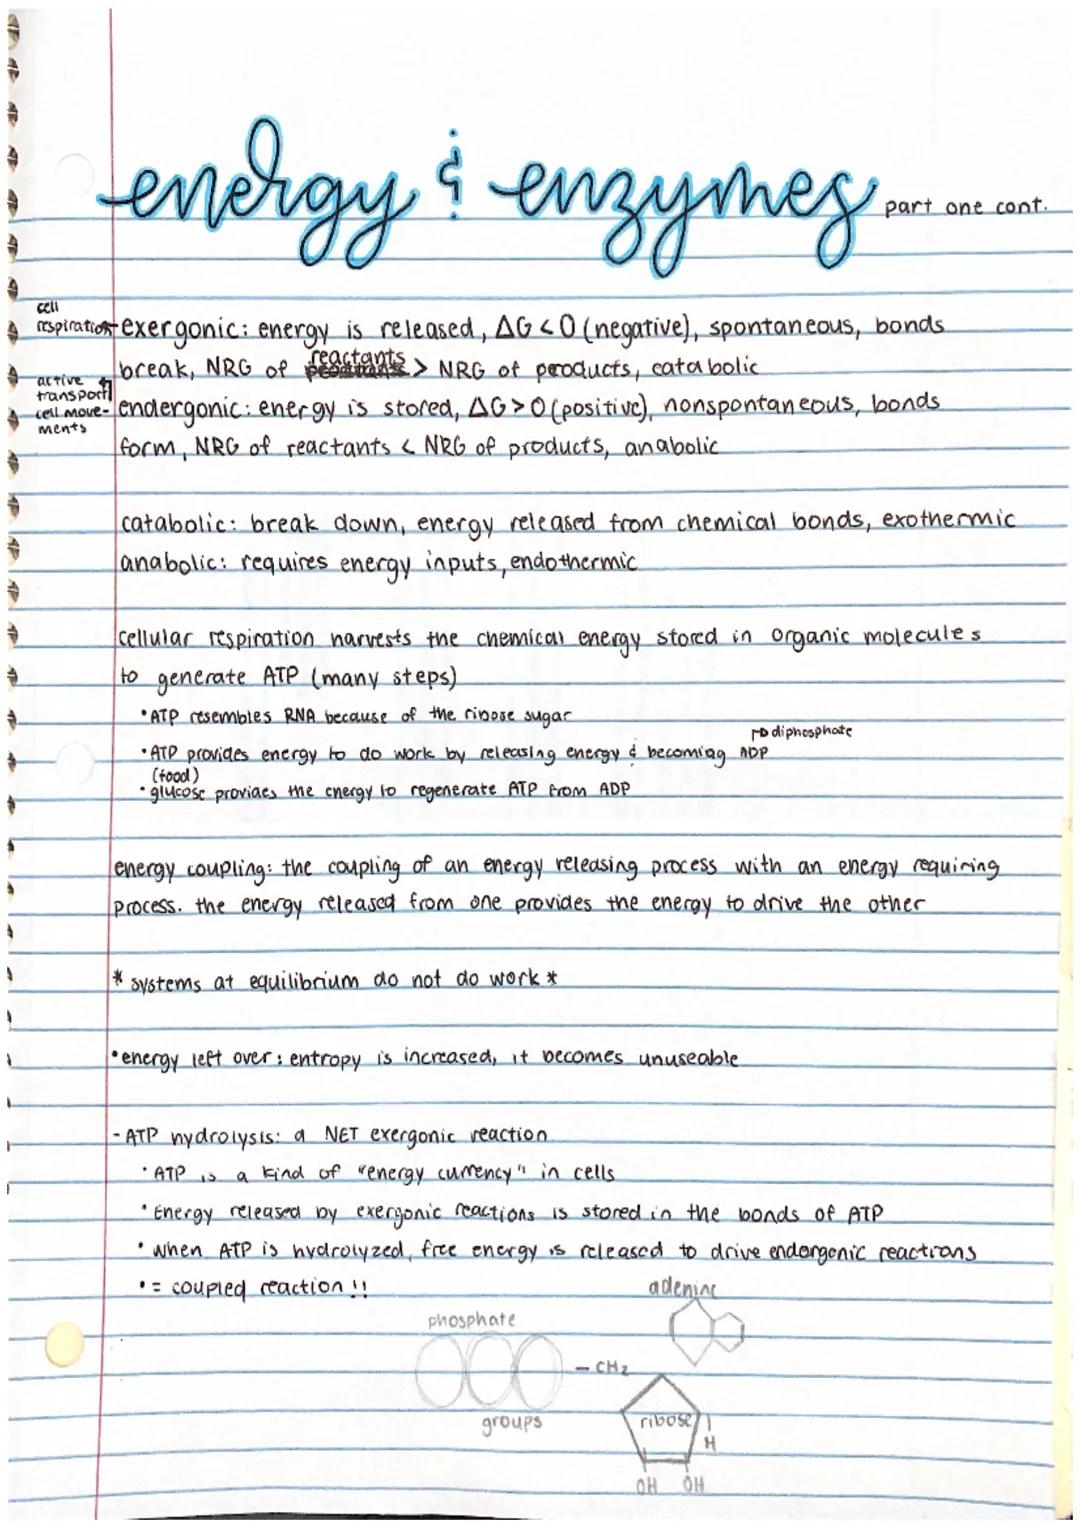 energy & enzymes part one cont.
cell
respiration
exergonic: energy is released, ΔG < 0 (negative), spontaneous, bonds
reactants
break, NRG of > NRG of products, catabolic
active
transport
cell move-
ments
endergonic: energy is stored, ΔG > 0 (positive), nonspontaneous, bonds
form, NRG of reactants < NRG of products, anabolic
catabolic: break down, energy released from chemical bonds, exothermic
anabolic: requires energy inputs, endothermic
cellular respiration harvests the chemical energy stored in organic molecules
to generate ATP (many steps)
•ATP resembles RNA because of the ribose sugar
→ diphosphate
•ATP provides energy to do work by releasing energy & becoming ADP
(food)
•glucose provides the energy to regenerate ATP from ADP
energy coupling: the coupling of an energy releasing process with an energy requiring
process. the energy released from one provides the energy to drive the other
* systems at equilibrium do not do work *
•energy left over: entropy is increased, it becomes unuseable
- ATP hydrolysis: a NET exergonic reaction
•ATP is a kind of "energy currency" in cells
•Energy released by exergonic reactions is stored in the bonds of ATP
•when ATP is hydrolyzed, free energy is released to drive endergonic reactions
•= coupled reaction !!
adenine
phosphate
- CH2
groups
ribose
H
OH OH